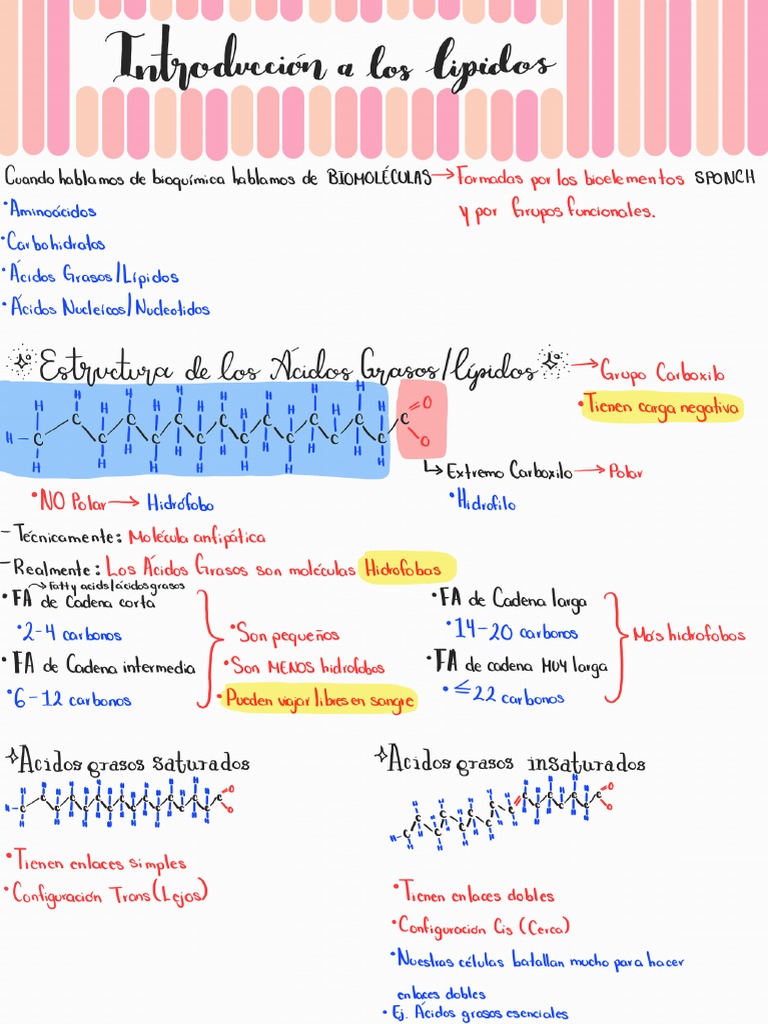 Introducción a los lípidos
Cuando hablamos de bioquímica hablamos de BIOMOLÉCULAS → Formadas por los bioelementos SPONCH
y por Grupos funcionales.
• Aminoácidos
• Carbohidratos
• Ácidos Grasos/Lípidos
• Ácidos Nucleícos/Nucleotidos
Estructura de los Ácidos Grasos/lípidos → Grupo Carboxilo
• Tienen carga negativa
Extremo Carboxilo → Polar
• NO Polar → Hidrófobo
• Hidrofilo
- Técnicamente: Molécula anfipática
- Realmente: Los Ácidos Grasos son moléculas Hidrofobas
→ Fatty acids/ácidos grasos
• FA de Cadena corta
• 2-4 carbonos
• FA de Cadena intermedia
• 6-12 carbonos
• Son pequeños
• Son MENOS hidrofobos
• Pueden viajar libres en sangre
• FA de Cadena larga
• 14-20 carbonos
• FA de cadena MUY larga
• ≤22 carbonos
Más hidrofobos
Ácidos grasos saturados
• Tienen enlaces simples
• Configuración Trans (Lejos)
Ácidos grasos insaturados
• Tienen enlaces dobles
• Configuración Cis (Cerca)
• Nuestras células batallan mucho para hacer
enlaces dobles
• Ej. Ácidos grasos esenciales